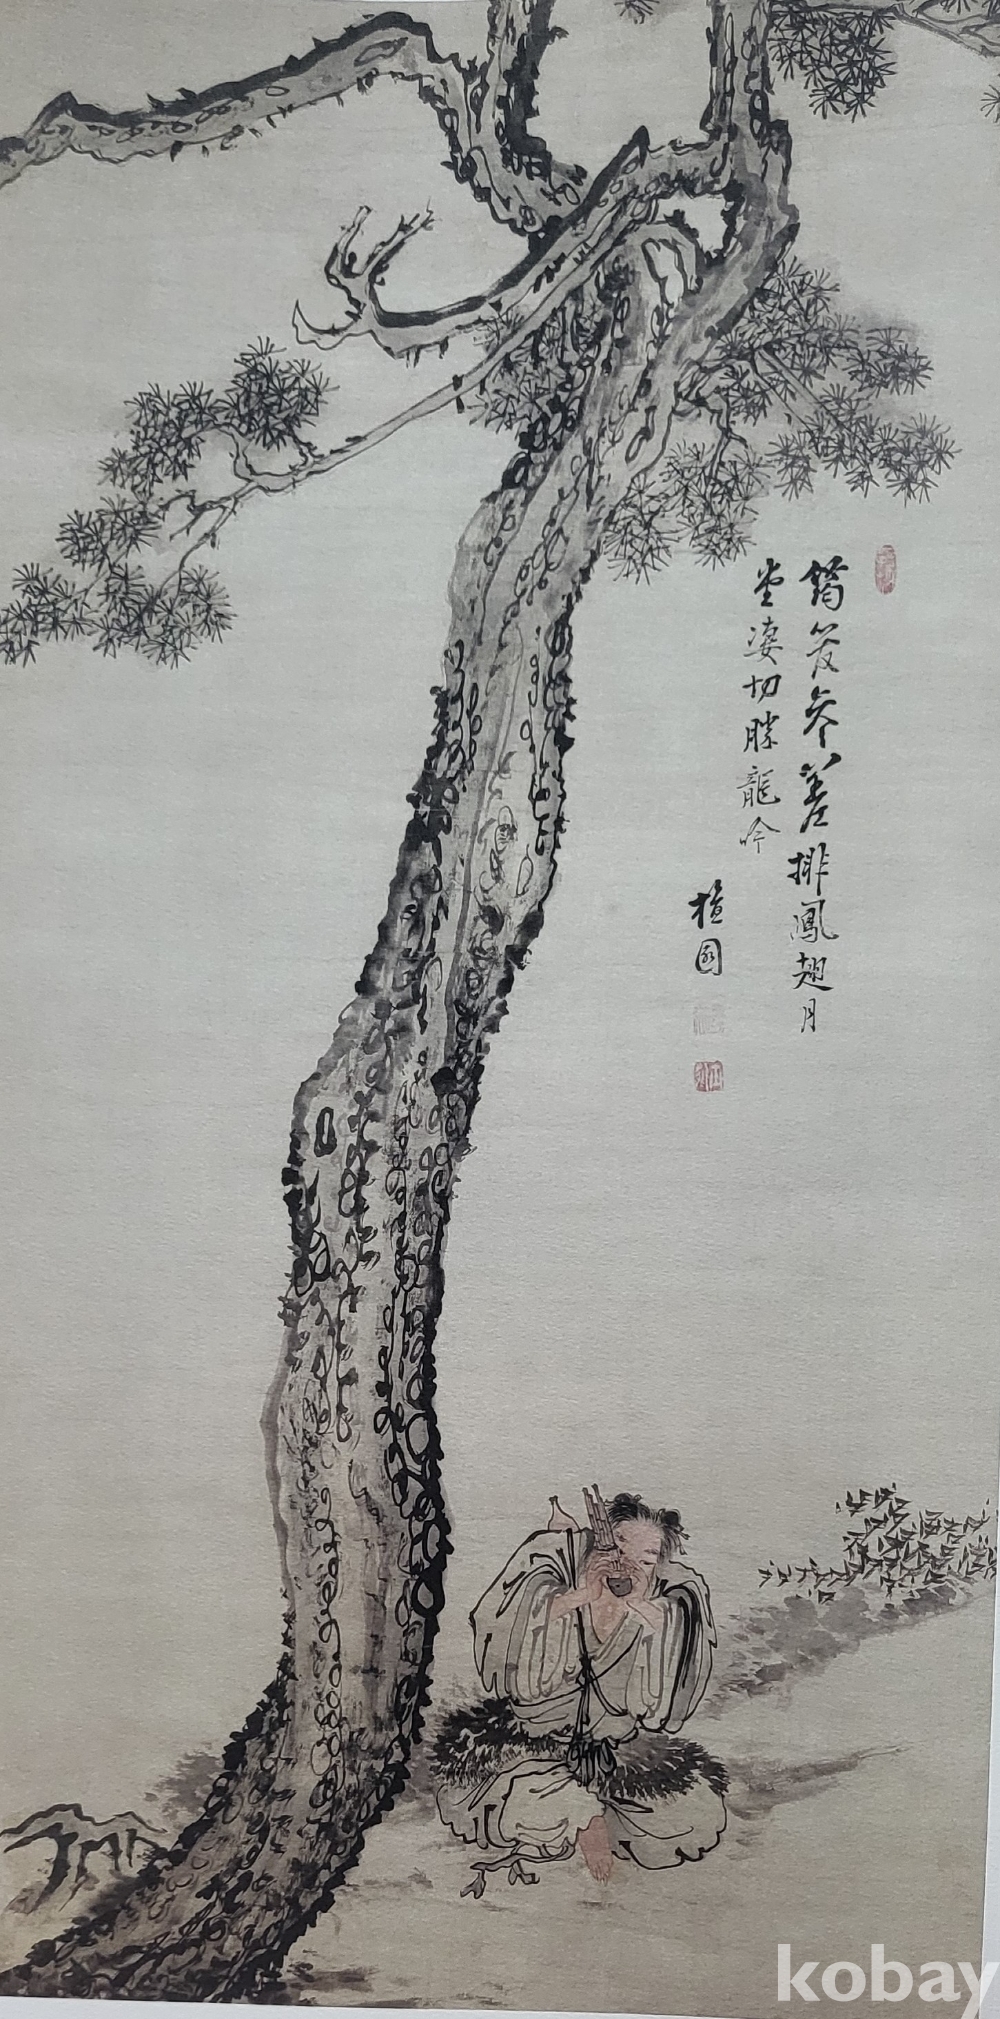 筠管參差排鳳翅月
堂凄切勝龍吟
檀園
kobay